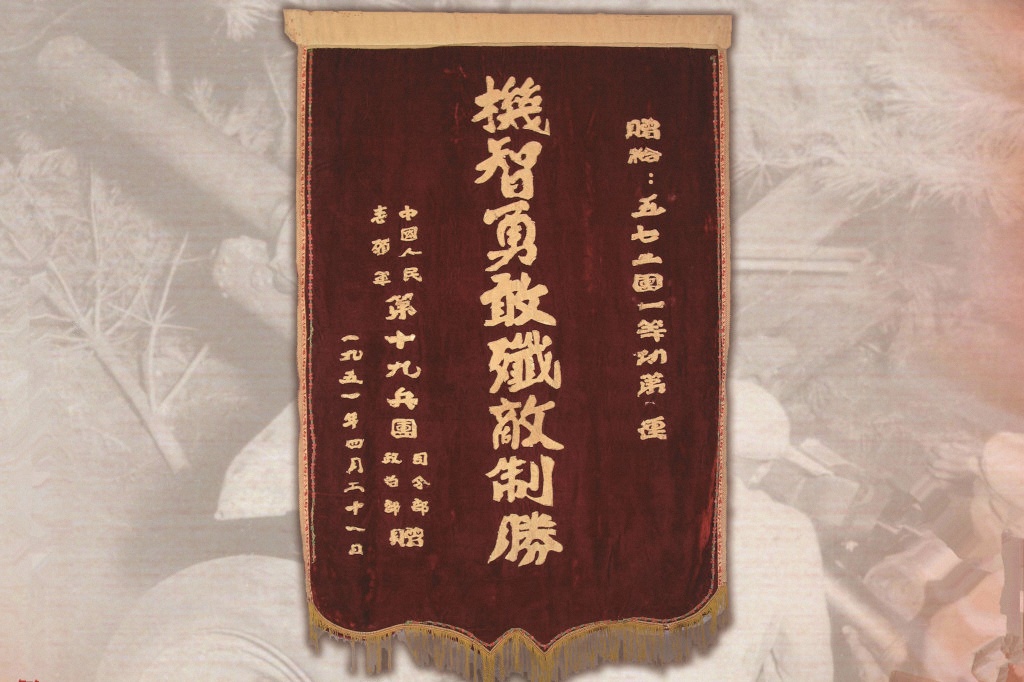 贈給：五七二團一等功第一連
機智勇敢殲敵制勝
中國人民
志願軍
第十九兵團
司令部
政治部
贈
一九五一年四月二十一日